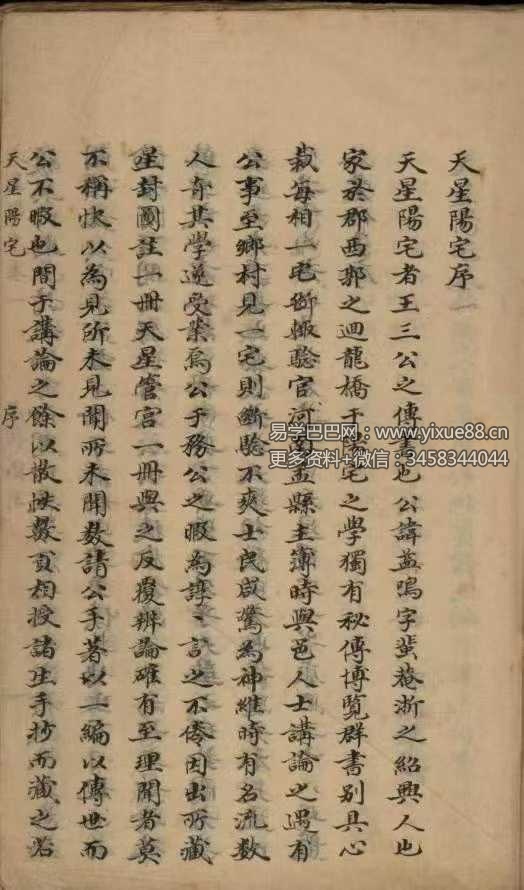 天星陽宅序
天星陽宅者王三公之傳書也公諱孟鳴字蜚菴浙之紹興人也
家於郡西郭之迴龍橋于陽宅之學獨有秘傳博覽群書別具心
裁每相一宅獅輙驗官河南孟縣主簿時與邑人士講論之遇有
公事至鄉村見一宅則斷驗不爽士民咸驚為神維時有名流數
人奇其學遂受業焉公于務公之暇為諄、言之不倦因出所藏
星封圖註一冊天星管宮一冊與之反覆辨論確有至理聞者莫
不稱快以為見所未見聞所未聞敦請公手著以一編以傳世而
公不暇也間于講論之餘以散帙數頁相授諸生手抄而藏之名
天星陽宅 序
易学巴巴网：www.yixue88.cn
更多资料+微信：3458344044